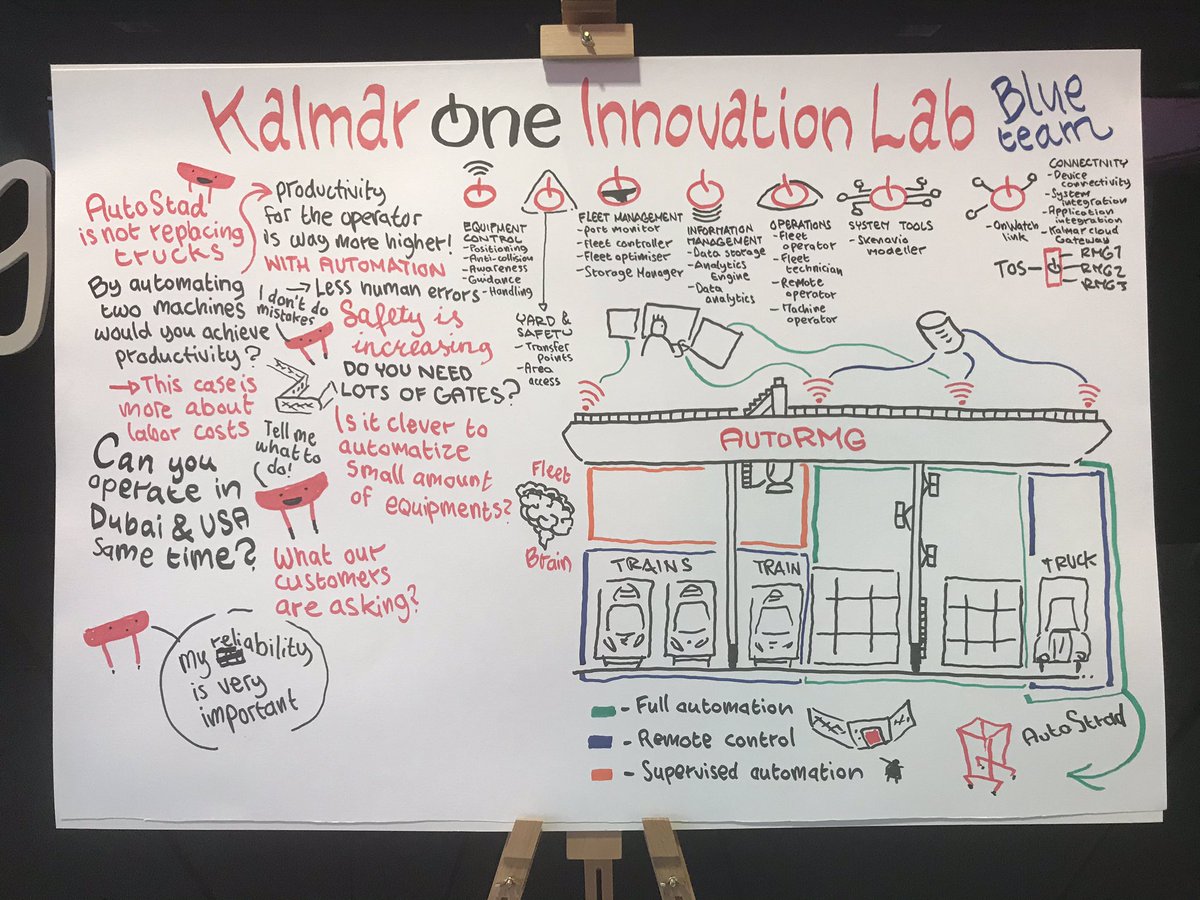 Kalmar One Innovation Lab
Blue
team
AutoStad
is not replacing
trucks
productivity
for the operator
is way more higher!
WITH AUTOMATION
→ Less human errors
By automating
two machines
would you achieve
productivity?
→ This case is
more about
labor costs
I don't do
mistakes
Safety is
increasing
DO YOU NEED
LOTS OF GATES?
Is it clever to
automatize
small amount
of equipments?
Tell me
what to
do!
Can you
operate in
Dubai & USA
same time?
What our
customers
are asking?
my reliability
is very
important
EQUIPMENT
CONTROL
- Positioning
- Anti-collision
- Awareness
- Guidance
- Handling
YARD &
SAFETY
- Transfer
Points
- Area
access
FLEET MANAGEMENT
- port monitor
- Fleet controller
- Fleet optimiser
- Storage Manager
INFORMATION
MANAGEMENT
- Data storage
- Analytics
Engine
- Data
analytics
OPERATIONS
- Fleet
operator
- Fleet
technician
- Remote
operator
- Machine
operator
SYSTEM TOOLS
- Skenavio
modeller
- OnWatch
link
CONNECTIVITY
- Device
connectivity
- System
integration
- Application
integration
- Kalmar cloud
Gateway
TOS
RMG1
RMG2
RMG3
AUTORMG
Fleet
Brain
TRAINS
TRAIN
TRUCK
- Full automation
- Remote control
- Supervised automation
AutoStrad